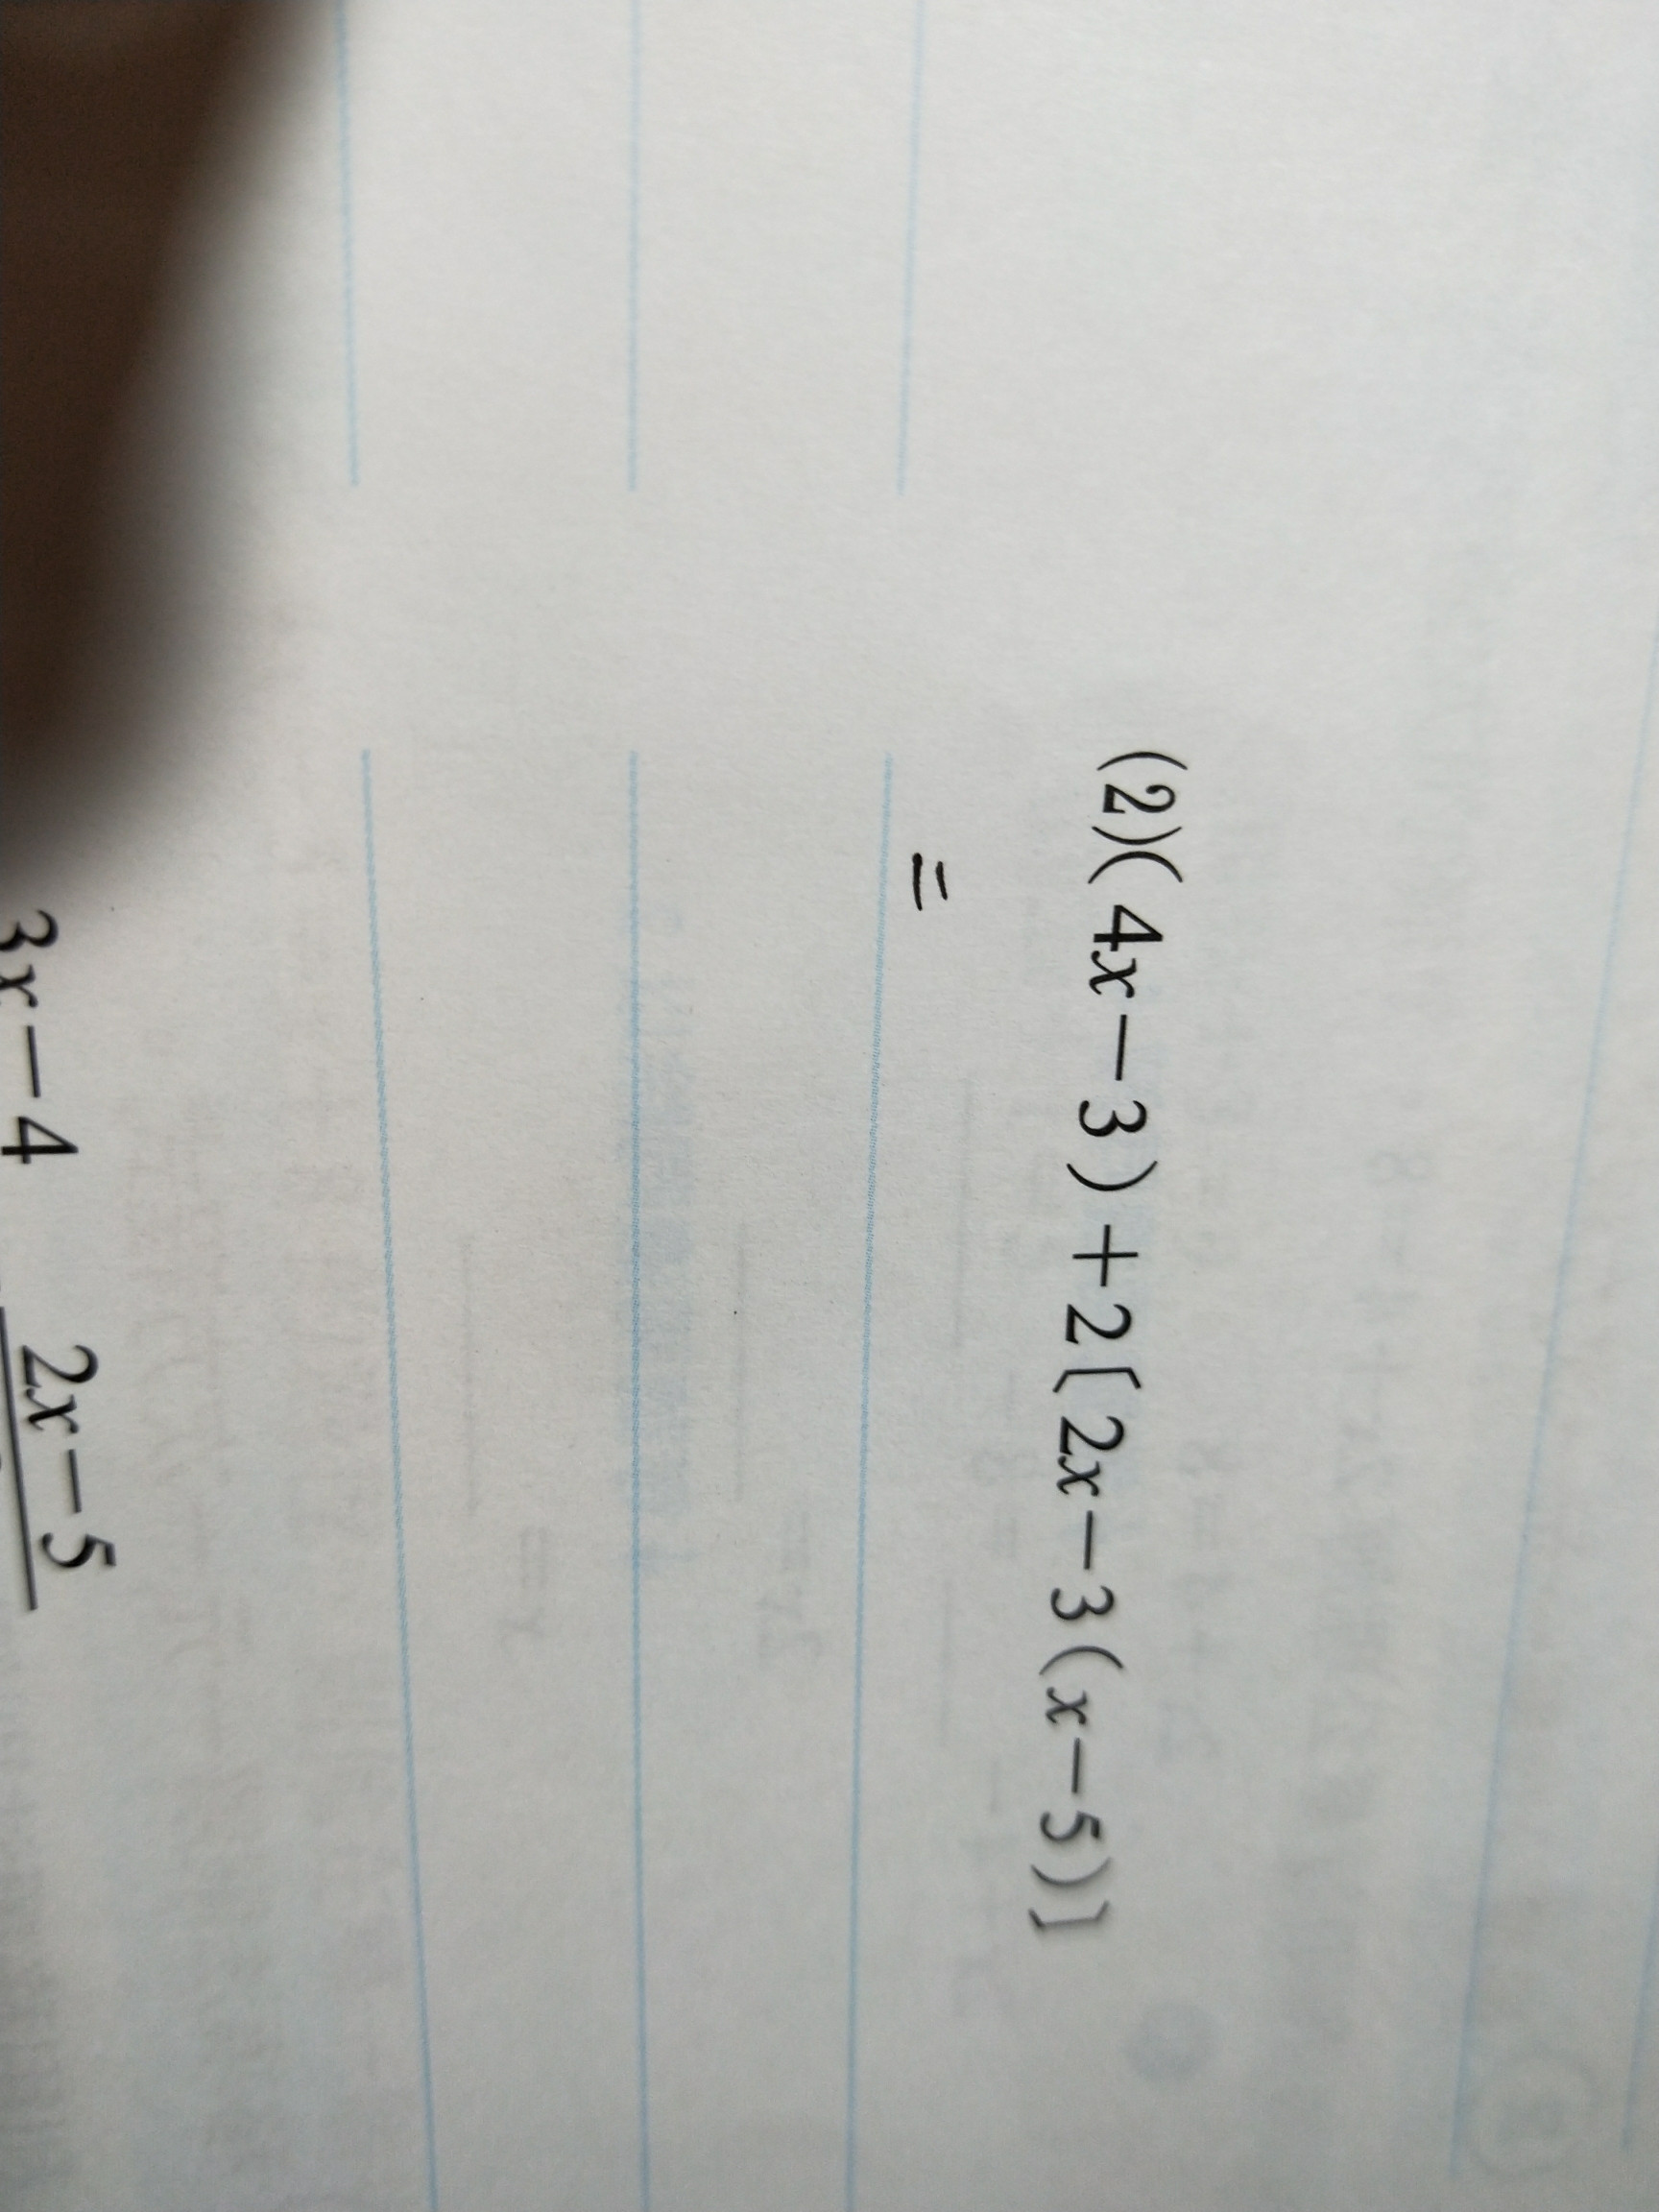 (2)(4x－3)＋2[2x－3(x－5)]
=
3x－4 2x－5